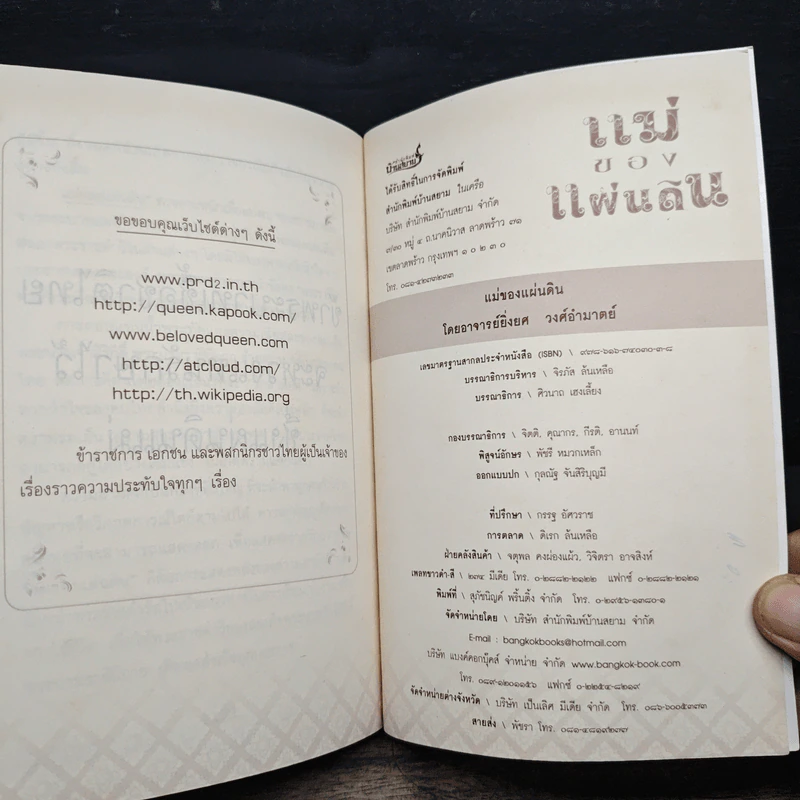 ขอขอบคุณเว็บไซต์ต่างๆ ดังนี้
www.prd2.in.th
http://queen.kapook.com/
www.belovedqueen.com
http://atcloud.com/
http://th.wikipedia.org
ข้าราชการ เอกชน และพสกนิกรชาวไทยผู้เป็นเจ้าของ
เรื่องราวความประทับใจทุกๆ เรื่อง
บ้านสยาม
ได้รับสิทธิ์ในการจัดพิมพ์
สำนักพิมพ์บ้านสยาม ในเครือ
บริษัท สำนักพิมพ์บ้านสยาม จำกัด
๗/๓๐ หมู่ ๔ ถ.นาคนิวาส ลาดพร้าว ๗๑
เขตลาดพร้าว กรุงเทพฯ ๑ ๐ ๒ ๓ ๐
โทร. ๐๘๑-๔๒๗๓๒๓๓
แม่
ของ
แผ่นดิน
แม่ของแผ่นดิน
โดยอาจารย์ยิ่งยศ วงศ์อำมาตย์
เลขมาตรฐานสากลประจำหนังสือ (ISBN) \ ๙๗๘-๖๑๖-๗๔๐๓๐-๓-๘
บรรณาธิการบริหาร \ จิรภัส ล้นเหลือ
บรรณาธิการ \ ศิวนาถ เฮงเลี้ยง
กองบรรณาธิการ \ จิตติ, คุณากร, กีรติ, อานนท์
พิสูจน์อักษร \ พัชรี หมวกเหล็ก
ออกแบบปก \ กุลณัฐ จันสิริบุญมี
ที่ปรึกษา \ กรรฐ อัศวราช
การตลาด \ ดิเรก ล้นเหลือ
ฝ่ายคลังสินค้า \ จตุพล คงผ่องแผ้ว, วิจิตรา อาจสิงห์
เพลทขาวดำ-สี \ ๒๓๔ มีเดีย โทร. ๐-๒๘๘๒-๒๑๒๒ แฟกซ์ ๐-๒๘๘๒-๒๑๒๑
พิมพ์ที่ \ สุภัชนิญค์ พริ้นติ้ง จำกัด โทร. ๐-๒๙๕๖-๑๓๘๐-๑
จัดจำหน่ายโดย \ บริษัท สำนักพิมพ์บ้านสยาม จำกัด
E-mail : bangkokbooks@hotmail.com
บริษัท แบงค์คอกบุ๊คส์ จำหน่าย จำกัด www.bangkok-book.com
โทร. ๐๘๙-๑๒๐๑๑๕๖ แฟกซ์ ๐-๒๒๕๔-๘๒๑๙
จัดจำหน่ายต่างจังหวัด \ บริษัท เป็นเลิศ มีเดีย จำกัด โทร. ๐๘๖-๖๐๐๕๓๗๓
สายส่ง \ พัชรา โทร. ๐๘๑-๔๘๑๙๒๓๗